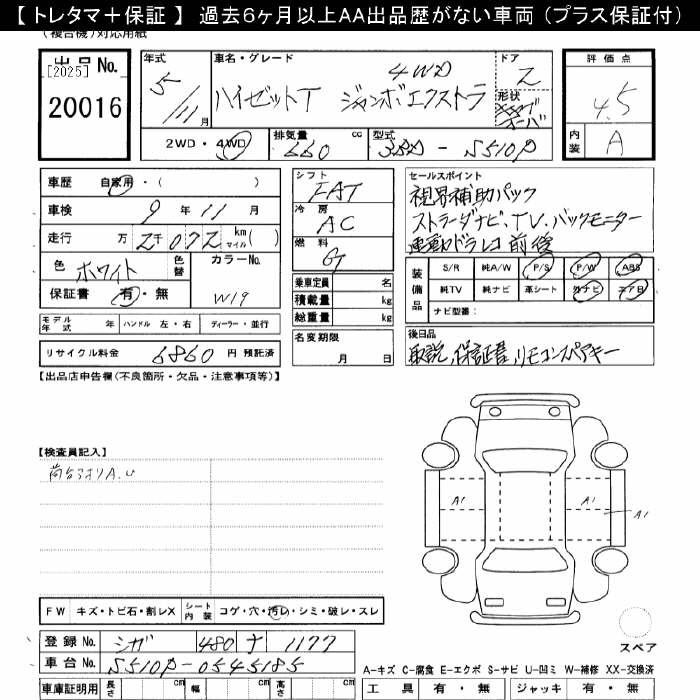 【 トレタマ＋保証 】 過去6ヶ月以上AA出品歴がない車両 (プラス保証付)
(複合機)対応用紙
出品 No.
[2025]
20016
年式 5/11月
車名・グレード 4WD
ハイゼットT ジャンボエクストラ
ドア 2
形状
評価点 4.5
内装 A
2WD・4WD
排気量 660 cc
型式 3BD - S510P
車歴 自家用・( )
車検 9年11月
走行 万2千072 km マイル( )
色 ホワイト 色替
カラーNo. W19
保証書 有・無
シフト FAT
冷房 AC
燃料 G
乗車定員 名
積載量 kg
総重量 kg
セールスポイント
視界補助パック
ストラーダナビ、TV、バックモニター
連動ドラレコ前後
装備品
S/R 純A/W P/S P/W ABS
純TV 純ナビ 革シート 外ナビ エアB
ナビ型番：
モデル年式 年 ハンドル 左・右 ディーラー・並行
リサイクル料金 6860 円 預託済
名変期限 月 日
後日品
取説、保証書、リモコンスペアキー
【出品店申告欄(不良箇所・欠品・注意事項等)】
【検査員記入】
荷台うすりA.U
A1 A1 A1
FW キズ・トビ石・割レX シート内装 コゲ・穴・汚レ・シミ・破レ・スレ
登録 No. シガ 480 ナ 1177
車台 No. S510P-0545185
車庫証明用 長さ cm 幅 cm 高さ cm
スペア
A-キズ C-腐食 E-エクボ S-サビ U-凹ミ W-補修 XX-交換済
工具 有・無 ジャッキ 有・無